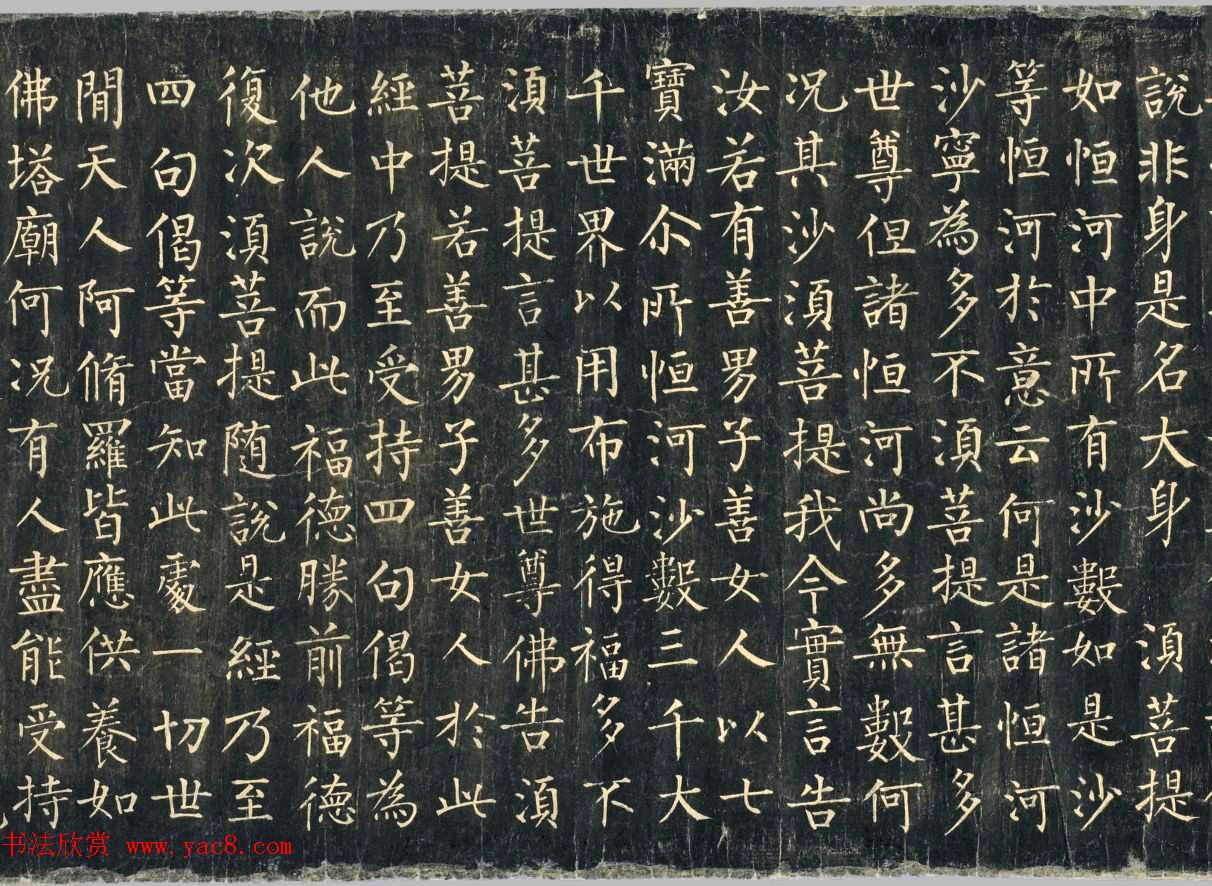 說非身是名大身 須菩提
如恒河中所有沙數如是沙
等恒河於意云何是諸恒河
沙寧為多不須菩提言甚多
世尊但諸恒河尚多無數何
况其沙須菩提我今實言告
汝若有善男子善女人以七
寶滿尒所恒河沙數三千大
千世界以用布施得福多不
須菩提言甚多世尊佛告須
菩提若善男子善女人於此
經中乃至受持四句偈等為
他人說而此福德勝前福德
復次須菩提随說是經乃至
四句偈等當知此處一切世
閒天人阿脩羅皆應供養如
佛塔廟何况有人盡能受持
书法欣赏 www.yac8.com